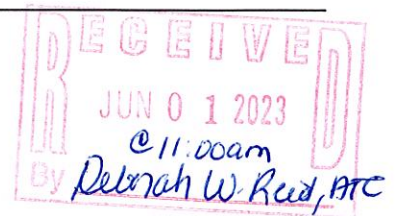 RECEIVED
JUN 01 2023
@11:00am
By Deborah W. Reid, ATC